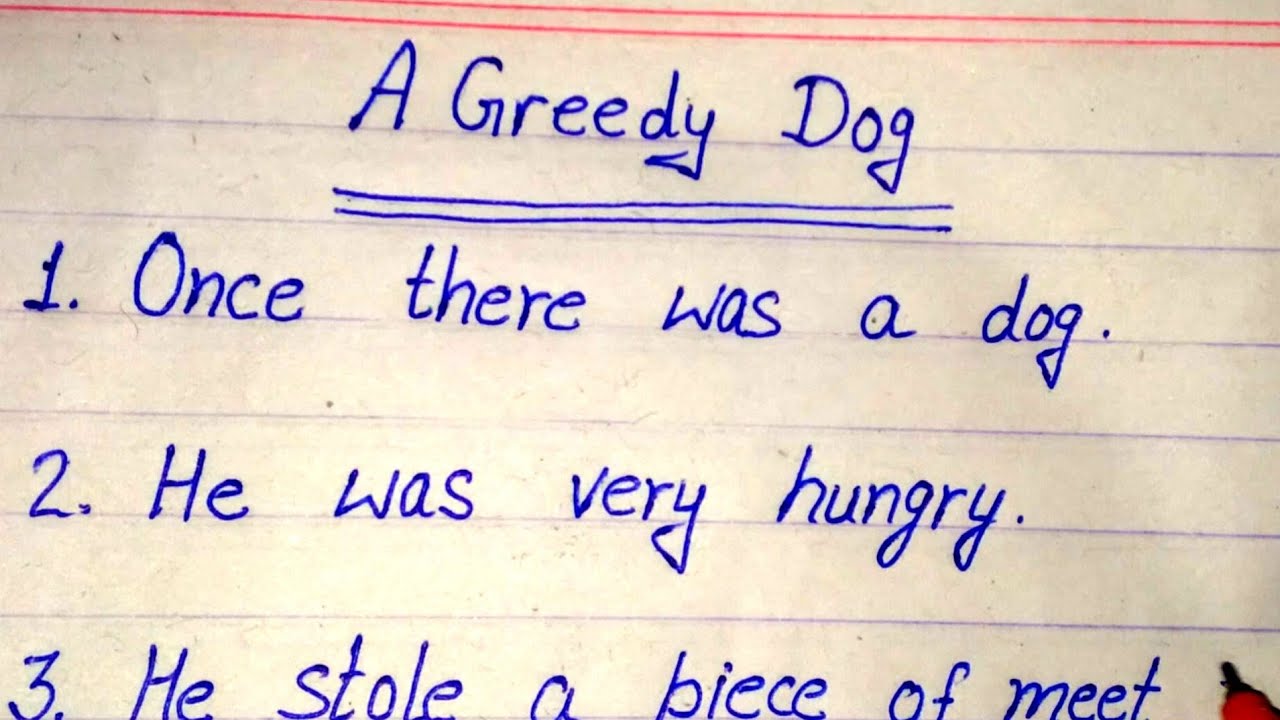 A Greedy Dog
1. Once there was a dog.
2. He was very hungry.
3. He stole a piece of meet